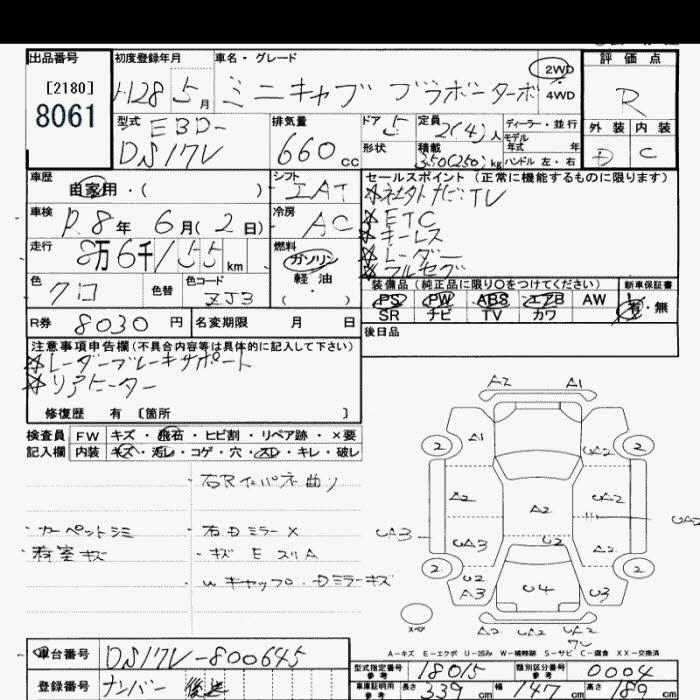 出品番号 初度登録年月 車名・グレード 評価点
[2180]
8061
H28 5月 ミニキャブ ブラボーターボ 2WD 4WD R
型式 EBD-DS17V
排気量 660cc
ドア 5
形状
定員 2(4)人
積載 350(250)kg
ディーラー・並行
モデル年式 年
ハンドル 左・右
外装 内装
D C
車歴 自家用・( )
シフト IAT
車検 R8年 6月(2日)
冷房 AC
走行 8万6千155km
燃料 ガソリン 軽油 ( )
色 クロ 色替 色コード
R券 8030円 名変期限 月 日
セールスポイント (正常に機能するものに限ります)
☆社外ナビTV
☆ETC
☆キーレス
☆レーダー
☆フルセグ
装備品(純正品に限り○をつけてください) 新車保証書
PS PW ABS エアB AW 有・無
SR ナビ TV カワ
後日品
注意事項申告欄(不具合内容等は具体的に記入して下さい)
☆レーダーブレーキサポート
☆リアヒーター
修復歴 有 〔箇所 〕
検査員 FW キズ・飛石・ヒビ割・リペア跡・×要
記入欄 内装 キズ・汚レ・コゲ・穴・スレ・キレ・破レ
・カーペットシミ ・右Dミラー×
・荷室キズ ・キズ E スリA
・Wキャップ・Dミラーキズ
A2 A1
2 A1 UA2 2
A2 A2 UA2
UA3 UA3 U2 A2 UA2
2 U2 A3 U4 U3 2
スペア A2 UA2 UA2
A-キズ E-エクボ U-凹み W-補修跡 S-サビ C-腐食 XX-交換済
車台番号 DS17V-800645
登録番号 ナンバー 後送
型式指定番号 参考 18015 類別区分番号 参考 0004
車庫証明用 参考 長さ 339cm 幅 147cm 高さ 189cm